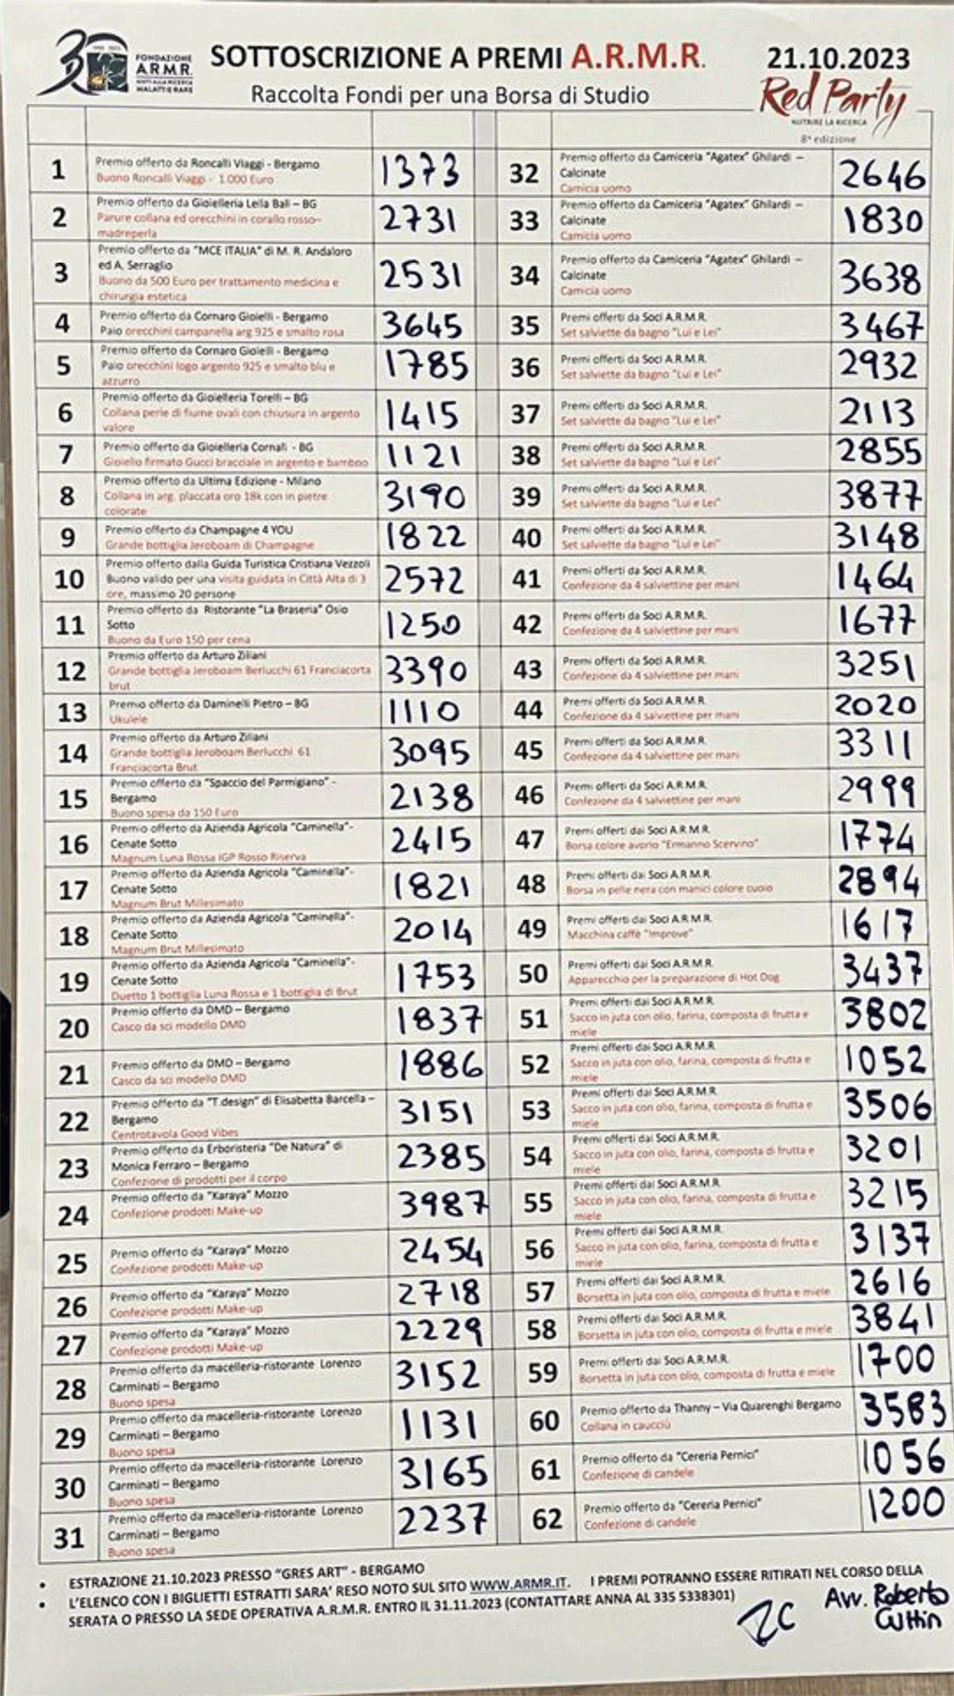 30
FONDAZIONE
A.R.M.R.
AIUTI ALLA RICERCA
MALATTIE RARE
SOTTOSCRIZIONE A PREMI A.R.M.R.
Raccolta Fondi per una Borsa di Studio
21.10.2023
Red Party
NUTRIRE LA RICERCA
8ª edizione
1 Premio offerto da Roncalli Viaggi - Bergamo 1373
Buono Roncalli Viaggi - 1.000 Euro
2 Premio offerto da Gioielleria Leila Bali – BG 2731
Parure collana ed orecchini in corallo rosso–
madreperla
3 Premio offerto da "MCE ITALIA" di M. R. Andaloro 2531
ed A. Serraglio
Buono da 500 Euro per trattamento medicina e
chirurgia estetica
4 Premio offerto da Cornaro Gioielli - Bergamo 3645
Paio orecchini campanella arg 925 e smalto rosa
5 Premio offerto da Cornaro Gioielli - Bergamo 1785
Paio orecchini logo argento 925 e smalto blu e
azzurro
6 Premio offerto da Gioielleria Torelli – BG 1415
Collana perle di fiume ovali con chiusura in argento
valore
7 Premio offerto da Gioielleria Cornali - BG 1121
Gioiello firmato Gucci bracciale in argento e bamboo
8 Premio offerto da Ultima Edizione - Milano 3190
Collana in arg. placcata oro 18k con in pietre
colorate
9 Premio offerto da Champagne 4 YOU 1822
Grande bottiglia Jeroboam di Champagne
10 Premio offerto dalla Guida Turistica Cristiana Vezzoli 2572
Buono valido per una visita guidata in Città Alta di 3
ore, massimo 20 persone
11 Premio offerto da Ristorante "La Braseria" Osio 1250
Sotto
Buono da Euro 150 per cena
12 Premio offerto da Arturo Ziliani 3390
Grande bottiglia Jeroboam Berlucchi 61 Franciacorta
brut
13 Premio offerto da Daminelli Pietro – BG 1110
Ukulele
14 Premio offerto da Arturo Ziliani 3095
Grande bottiglia Jeroboam Berlucchi 61
Franciacorta Brut
15 Premio offerto da "Spaccio del Parmigiano" - 2138
Bergamo
Buono spesa da 150 Euro
16 Premio offerto da Azienda Agricola "Caminella"- 2415
Cenate Sotto
Magnum Luna Rossa IGP Rosso Riserva
17 Premio offerto da Azienda Agricola "Caminella"- 1821
Cenate Sotto
Magnum Brut Millesimato
18 Premio offerto da Azienda Agricola "Caminella"- 2014
Cenate Sotto
Magnum Brut Millesimato
19 Premio offerto da Azienda Agricola "Caminella"- 1753
Cenate Sotto
Duetto 1 bottiglia Luna Rossa e 1 bottiglia di Brut
20 Premio offerto da DMD – Bergamo 1837
Casco da sci modello DMD
21 Premio offerto da DMD – Bergamo 1886
Casco da sci modello DMD
22 Premio offerto da "T.design" di Elisabetta Barcella – 3151
Bergamo
Centrotavola Good Vibes
23 Premio offerto da Erboristeria "De Natura" di 2385
Monica Ferraro – Bergamo
Confezione di prodotti per il corpo
24 Premio offerto da "Karaya" Mozzo 3987
Confezione prodotti Make-up
25 Premio offerto da "Karaya" Mozzo 2454
Confezione prodotti Make-up
26 Premio offerto da "Karaya" Mozzo 2718
Confezione prodotti Make-up
27 Premio offerto da "Karaya" Mozzo 2229
Confezione prodotti Make-up
28 Premio offerto da macelleria-ristorante Lorenzo 3152
Carminati – Bergamo
Buono spesa
29 Premio offerto da macelleria-ristorante Lorenzo 1131
Carminati – Bergamo
Buono spesa
30 Premio offerto da macelleria-ristorante Lorenzo 3165
Carminati – Bergamo
Buono spesa
31 Premio offerto da macelleria-ristorante Lorenzo 2237
Carminati – Bergamo
Buono spesa
32 Premio offerto da Camiceria "Agatex" Ghilardi – 2646
Calcinate
Camicia uomo
33 Premio offerto da Camiceria "Agatex" Ghilardi – 1830
Calcinate
Camicia uomo
34 Premio offerto da Camiceria "Agatex" Ghilardi – 3638
Calcinate
Camicia uomo
35 Premi offerti da Soci A.R.M.R. 3467
Set salviette da bagno "Lui e Lei"
36 Premi offerti da Soci A.R.M.R. 2932
Set salviette da bagno "Lui e Lei"
37 Premi offerti da Soci A.R.M.R. 2113
Set salviette da bagno "Lui e Lei"
38 Premi offerti da Soci A.R.M.R. 2855
Set salviette da bagno "Lui e Lei"
39 Premi offerti da Soci A.R.M.R. 3877
Set salviette da bagno "Lui e Lei"
40 Premi offerti da Soci A.R.M.R. 3148
Set salviette da bagno "Lui e Lei"
41 Premi offerti da Soci A.R.M.R. 1464
Confezione da 4 salviettine per mani
42 Premi offerti da Soci A.R.M.R. 1677
Confezione da 4 salviettine per mani
43 Premi offerti da Soci A.R.M.R. 3251
Confezione da 4 salviettine per mani
44 Premi offerti da Soci A.R.M.R. 2020
Confezione da 4 salviettine per mani
45 Premi offerti da Soci A.R.M.R. 3311
Confezione da 4 salviettine per mani
46 Premi offerti da Soci A.R.M.R. 2999
Confezione da 4 salviettine per mani
47 Premi offerti dai Soci A.R.M.R. 1774
Borsa colore avorio "Ermanno Scervino"
48 Premi offerti dai Soci A.R.M.R. 2894
Borsa in pelle nera con manici colore cuoio
49 Premi offerti dai Soci A.R.M.R. 1617
Macchina caffè "Improve"
50 Premi offerti dai Soci A.R.M.R. 3437
Apparecchio per la preparazione di Hot Dog
51 Premi offerti dai Soci A.R.M.R. 3802
Sacco in juta con olio, farina, composta di frutta e
miele
52 Premi offerti dai Soci A.R.M.R. 1052
Sacco in juta con olio, farina, composta di frutta e
miele
53 Premi offerti dai Soci A.R.M.R. 3506
Sacco in juta con olio, farina, composta di frutta e
miele
54 Premi offerti dai Soci A.R.M.R. 3201
Sacco in juta con olio, farina, composta di frutta e
miele
55 Premi offerti dai Soci A.R.M.R. 3215
Sacco in juta con olio, farina, composta di frutta e
miele
56 Premi offerti dai Soci A.R.M.R. 3137
Sacco in juta con olio, farina, composta di frutta e
miele
57 Premi offerti dai Soci A.R.M.R. 2616
Borsetta in juta con olio, composta di frutta e miele
58 Premi offerti dai Soci A.R.M.R. 3841
Borsetta in juta con olio, composta di frutta e miele
59 Premi offerti dai Soci A.R.M.R. 1700
Borsetta in juta con olio, composta di frutta e miele
60 Premio offerto da Thanny – Via Quarenghi Bergamo 3583
Collana in caucciù
61 Premio offerto da "Cereria Pernici" 1056
Confezione di candele
62 Premio offerto da "Cereria Pernici" 1200
Confezione di candele
• ESTRAZIONE 21.10.2023 PRESSO "GRES ART" - BERGAMO
• L'ELENCO CON I BIGLIETTI ESTRATTI SARA' RESO NOTO SUL SITO WWW.ARMR.IT. I PREMI POTRANNO ESSERE RITIRATI NEL CORSO DELLA
SERATA O PRESSO LA SEDE OPERATIVA A.R.M.R. ENTRO IL 31.11.2023 (CONTATTARE ANNA AL 335 5338301)
Avv. Roberto